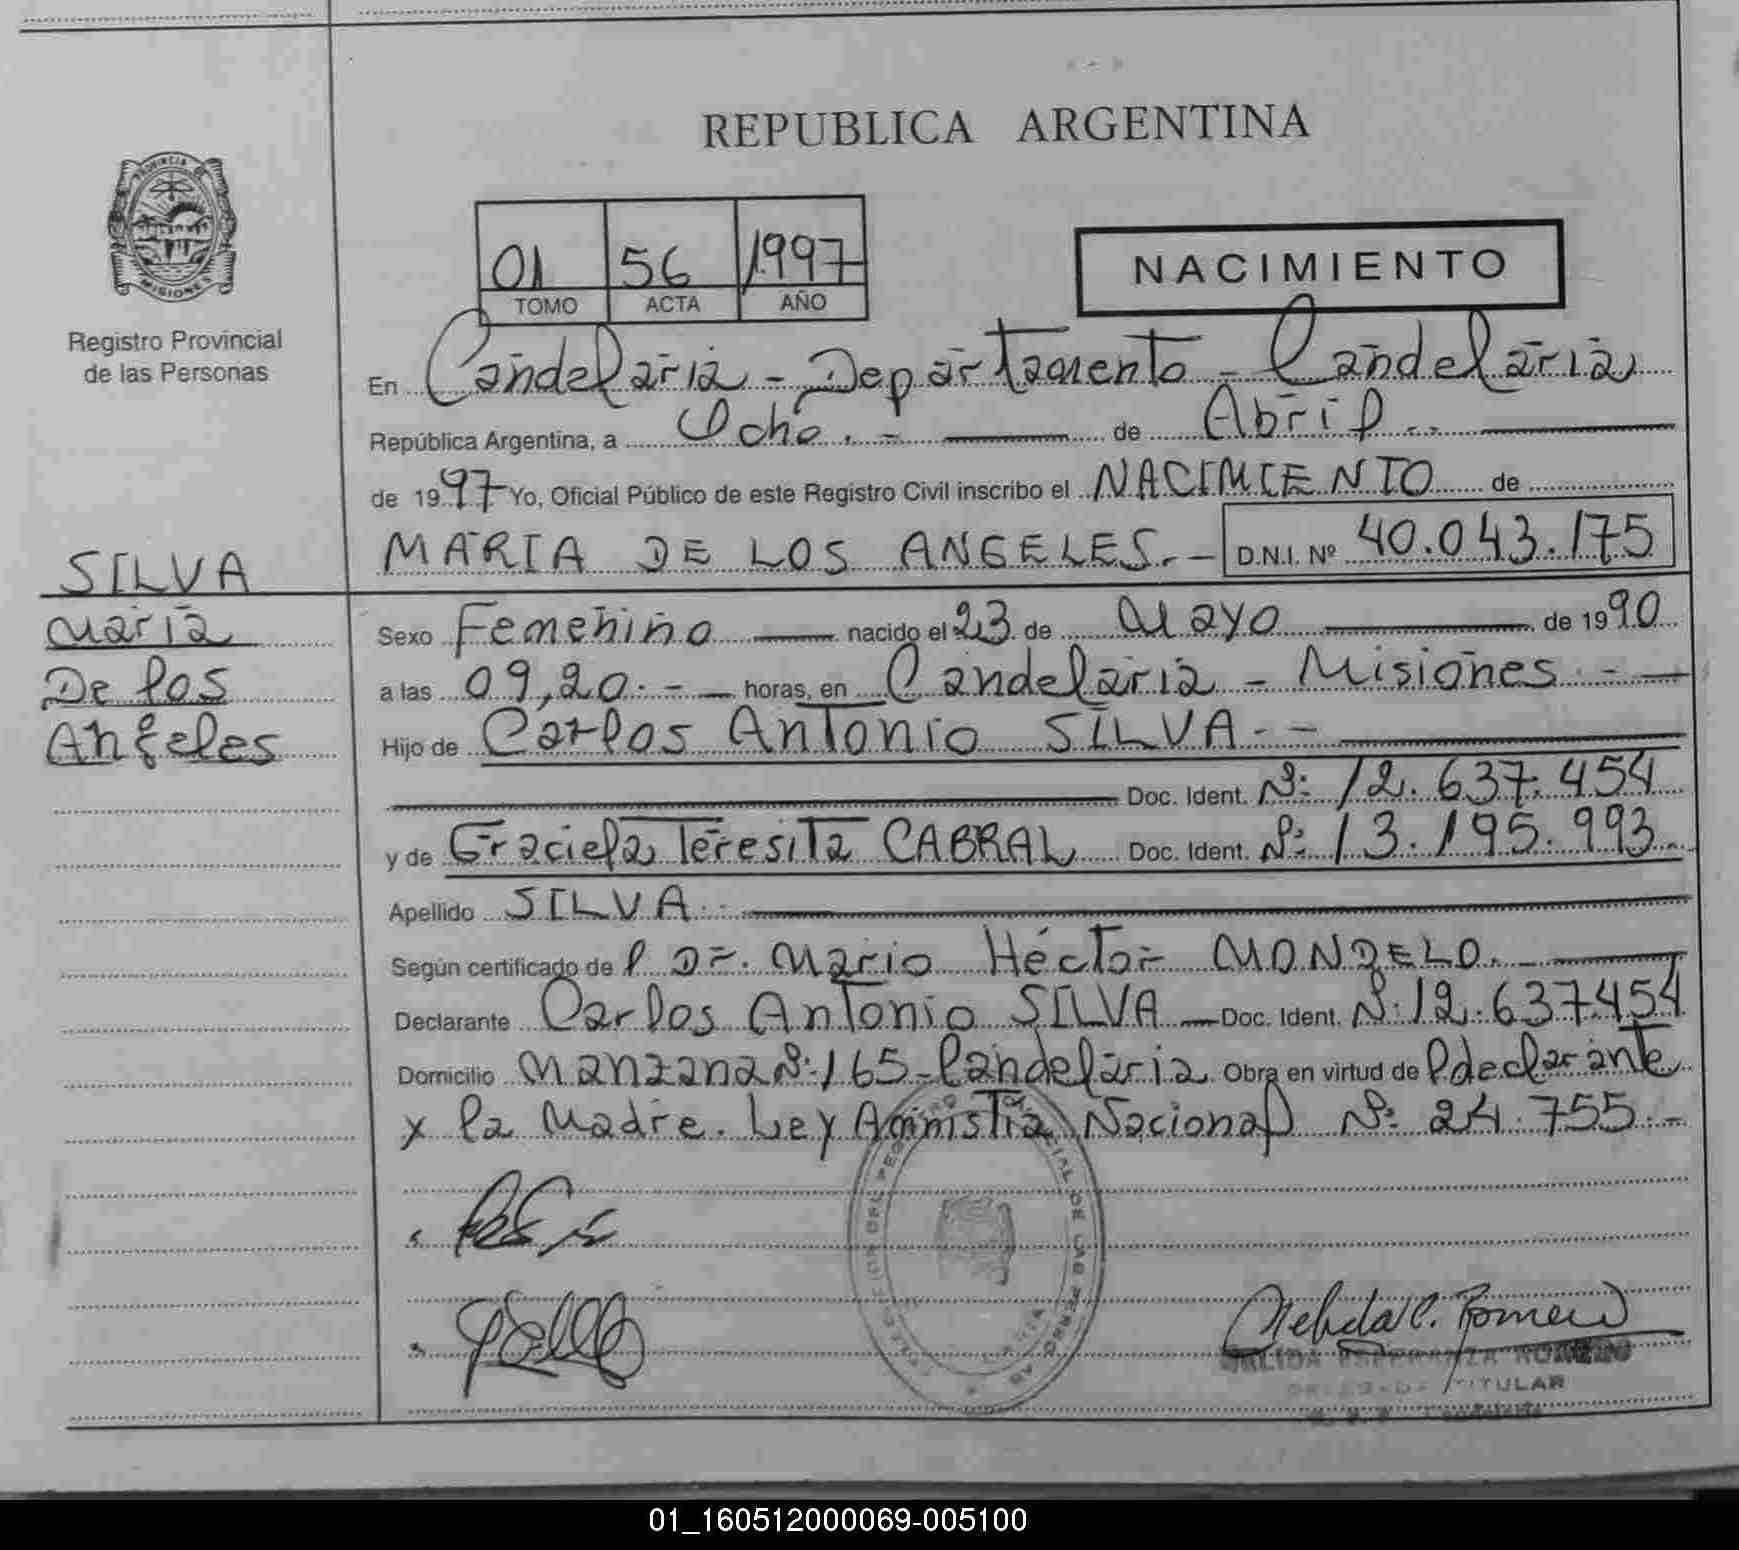 REPUBLICA ARGENTINA
PROVINCIA DE MISIONES
Registro Provincial
de las Personas
01 56 1997
TOMO ACTA AÑO
NACIMIENTO
En Candelaria - Departamento - Candelaria
República Argentina, a Ocho. - de Abril
de 1997 Yo, Oficial Público de este Registro Civil inscribo el NACIMIENTO de
MARIA DE LOS ANGELES. - D.N.I. Nº 40.043.175
SILVA
Maria
De los
Angeles
Sexo Femenino nacido el 23 de Mayo de 1990
a las 09,20. - horas, en Candelaria - Misiones - -
Hijo de Carlos Antonio SILVA. -
Doc. Ident. Nº: 12.637.454
y de Graciela Teresita CABRAL Doc. Ident. Nº: 13.195.993
Apellido SILVA
Según certificado de l Dr. Mario Héctor MONDELO. -
Declarante Carlos Antonio SILVA Doc. Ident. Nº: 12.637.454
Domicilio Manzana Nº: 165 - Candelaria Obra en virtud de l declarante
x la Madre. Ley Amnistia Nacional Nº: 24.755. -
Nelida E. Romero
NELIDA ESPERANZA ROMERO
TITULAR
Candelaria
01_160512000069-005100